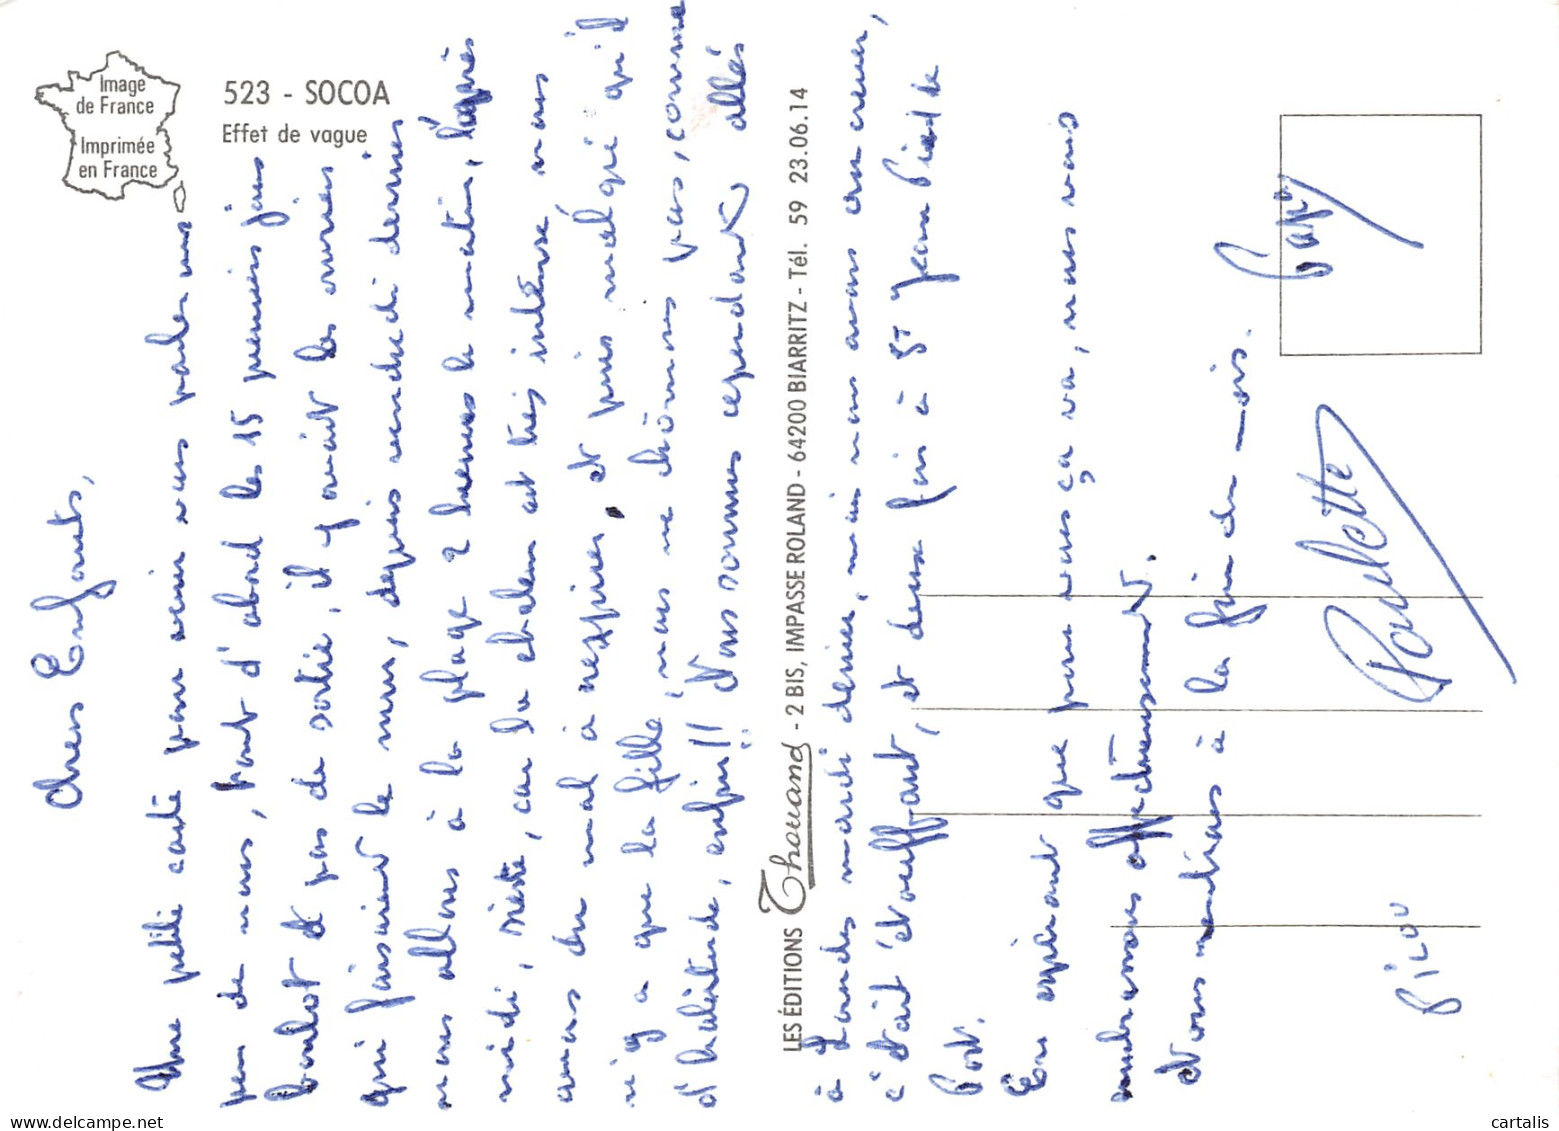 Image
de France
Imprimée
en France
523 - SOCOA
Effet de vague
Chers Enfants,
Une petite carte pour venir vous parler un
peu de nous, tout d'abord les 15 premiers jours
boulot et pas de sortie, il y avait les ouvriers
qui faisaient le mur, depuis vendredi dernier
nous allons à la plage 2 heures le matin, l'après
midi, sieste, car la chaleur est très intense, nous
avons du mal à respirer, et puis malgré qu'il
n'y a que la fille, nous ne chômons pas, comme
d'habitude, enfin!! Nous sommes cependant allés
LES ÉDITIONS Thouand - 2 BIS, IMPASSE ROLAND - 64200 BIARRITZ - Tél. 59 23.06.14
à Lourdes mardi dernier, mais nous avons cru crever,
c'était étouffant, et deux fois à St Jean Pied de
Port.
En espérant que pour vous ça va, nous vous
embrassons affectueusement.
Nous rentrons à la fin du mois.
Papy
Paulette
PILOU
cartalis